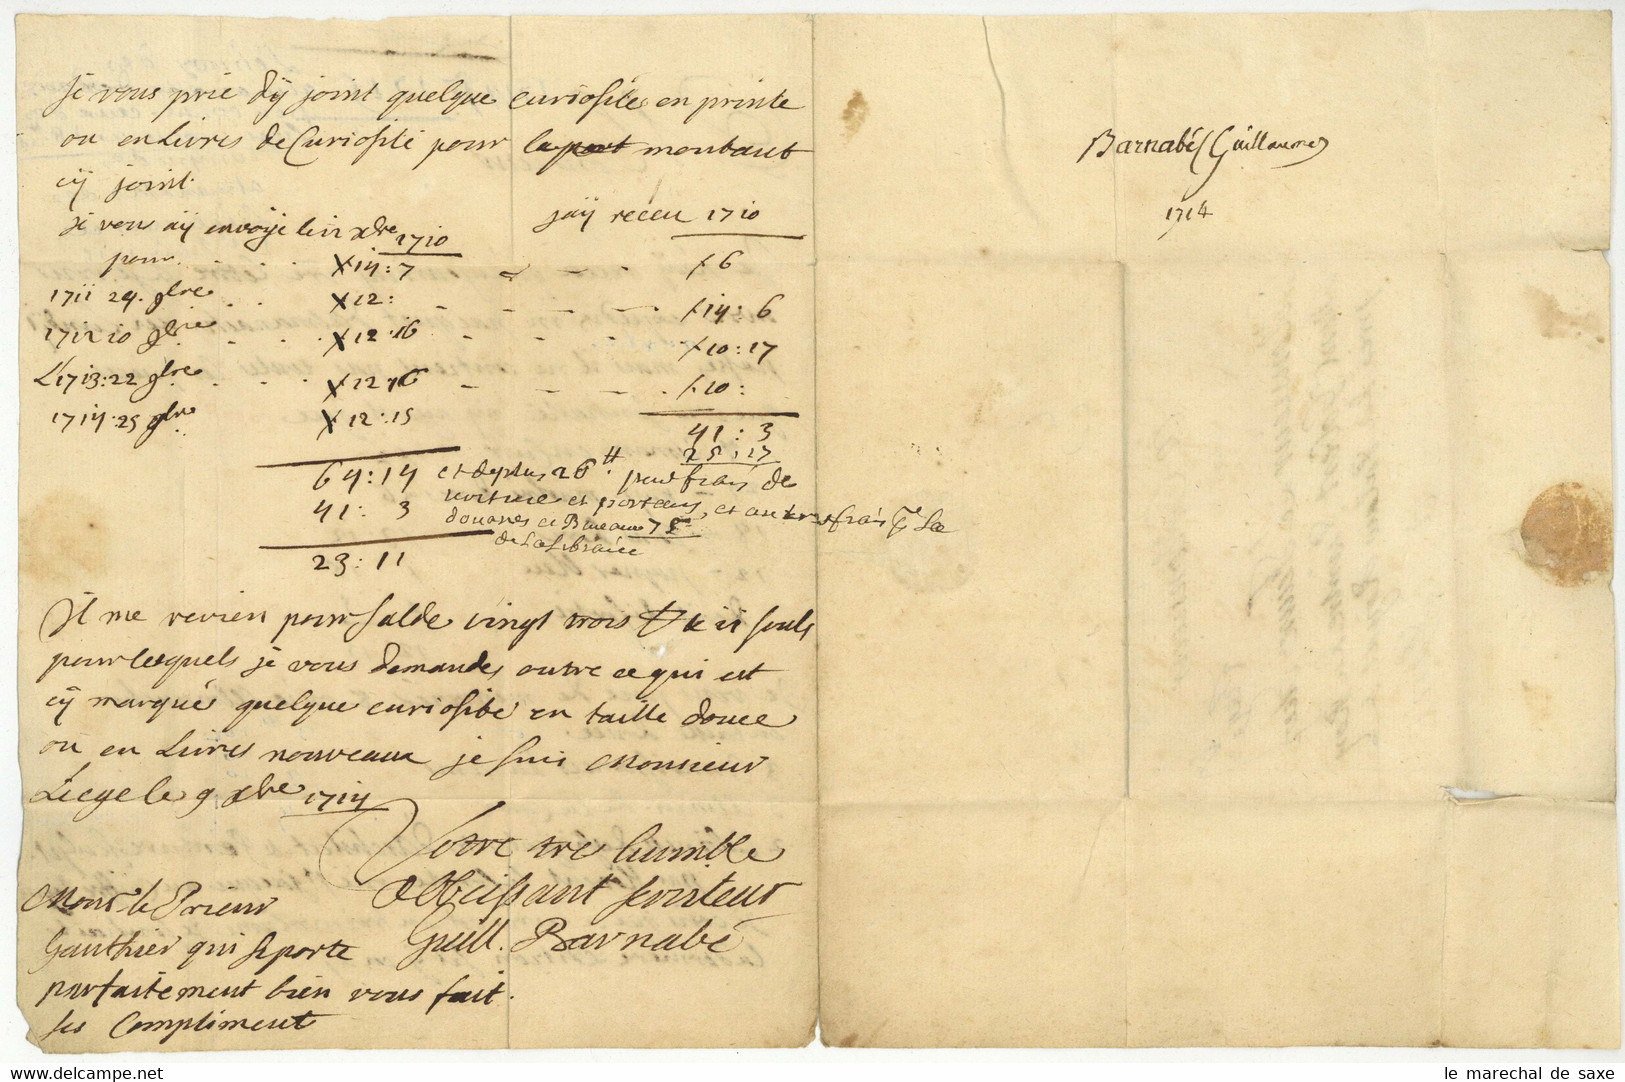 Je vous prie dÿ joint quelque curiosités en printe
ou en Livres de Curiosité pour la part montant
cÿ joint.
Je vous aÿ envoÿe le 12 xbre 1710
jaÿ receu 1710
pour . . . X 14:7 — — . X 6
1711 24. 9bre . . X 12: — — — X 14: 6
1712 10 9bre . . . X 12 16 — — — X 10:17
L 1713:22 9bre . . . X 12 16 — — . X 10:
1714:25 9bre X 12:15
41 : 3
64:14
41: 3
23:11
25:17
et de plus 26 ₶ pour frais de
voiture et porteurs, et autres frais
douanes et Bureau 75
de La Librairie
Il me revien pour Salde vingt trois ₶ & 11 souls
pour lesquels je vous demandes outre ce qui est
cÿ marqué quelque curiosité en taille douce
ou en Livres nouveaux je suis Monsieur
Liege le 9 xbre 1714
Votre tres humble
Obeissant serviteur
Guill. Barnabé
Monsr le Prieur
Gauthier qui se porte
parfaitement bien vous fait
ses Compliment
Barnabé Guillaume
1714
le marechal de saxe